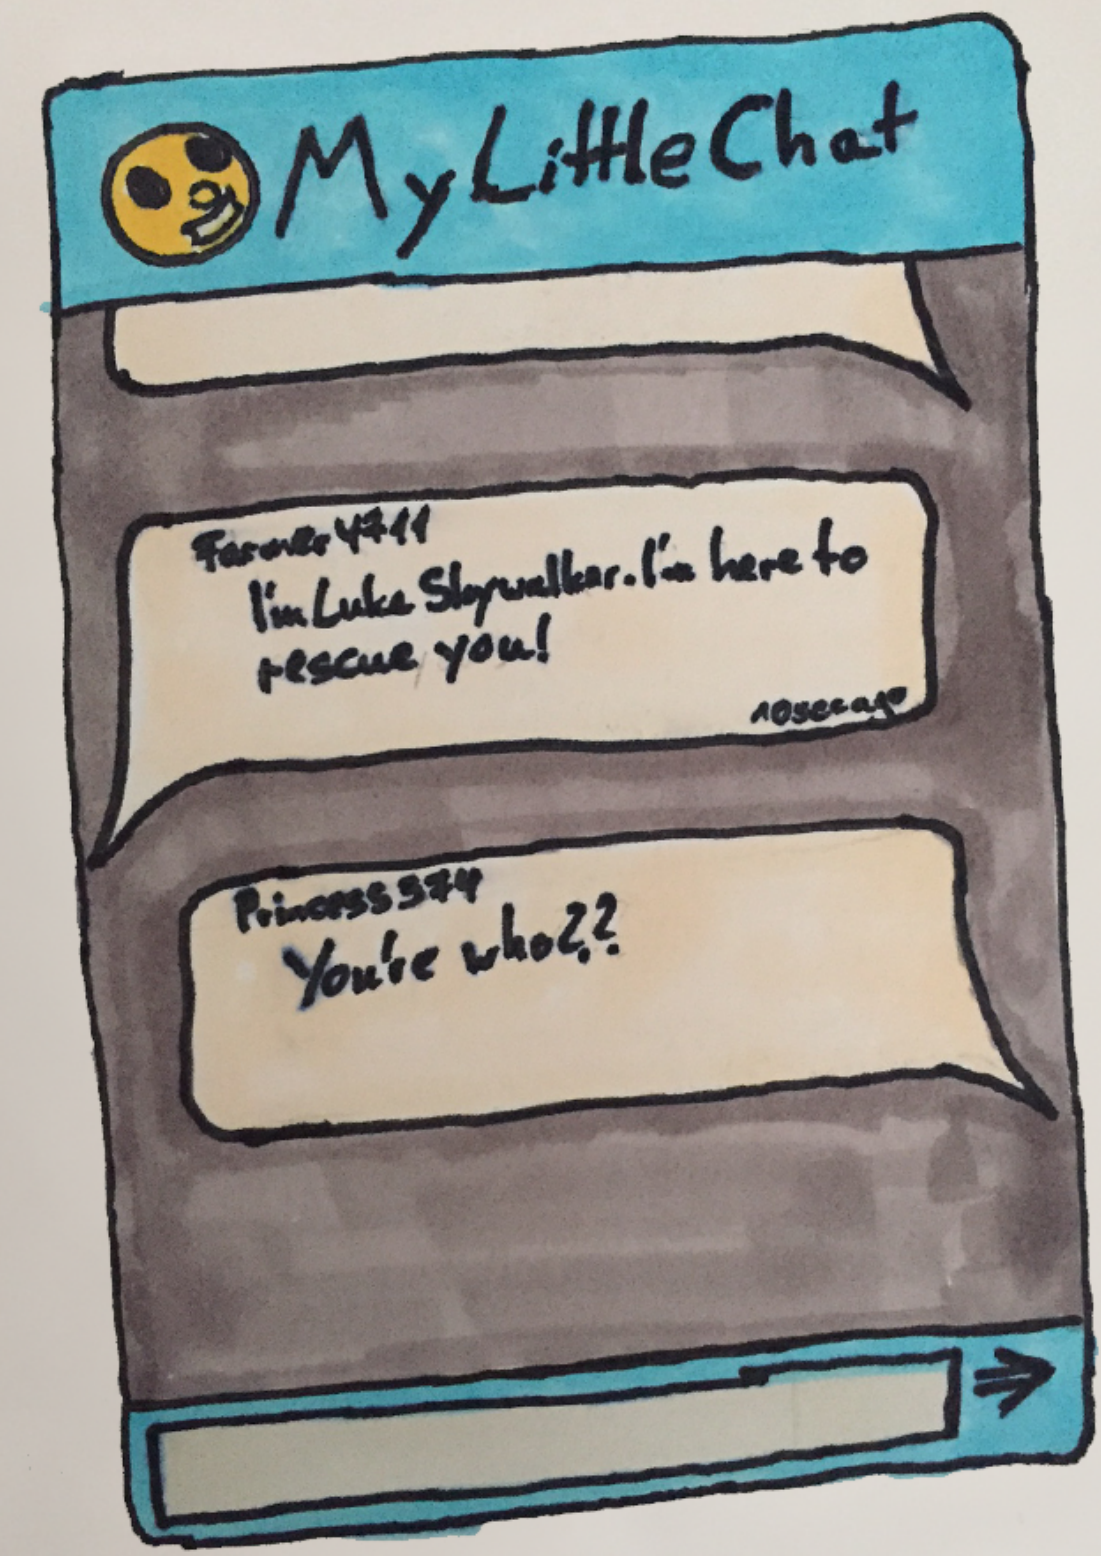 MyLittleChat
Farmer4711
I'm Luke Skywalker. I'm here to
rescue you!
10sec ago
Princess374
You're who??